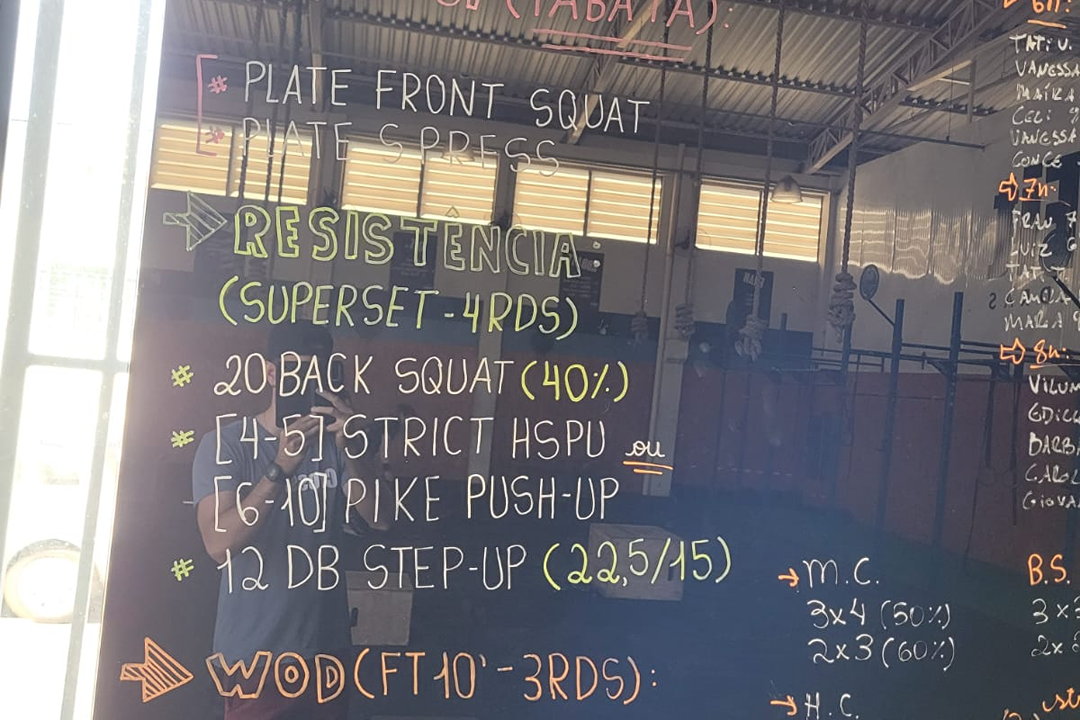 (TABATA):
* PLATE FRONT SQUAT
* PLATE S.PRESS
RESISTÊNCIA:
(SUPERSET-4RDS)
# 20 BACK SQUAT (40%)
# [4-5] STRICT HSPU ou
[6-10] PIKE PUSH-UP
# 12 DB STEP-UP (22,5/15)
WOD (FT10'-3RDS):
M.C.
3x4 (50%)
2x3 (60%)
H.C.
B.S.
6h:
TATI V.
VANESSA
MAÍRA
CELI
VANESSA
CONCE
7h:
FRAN
LUIZ
CAMILA
MARA
8h: